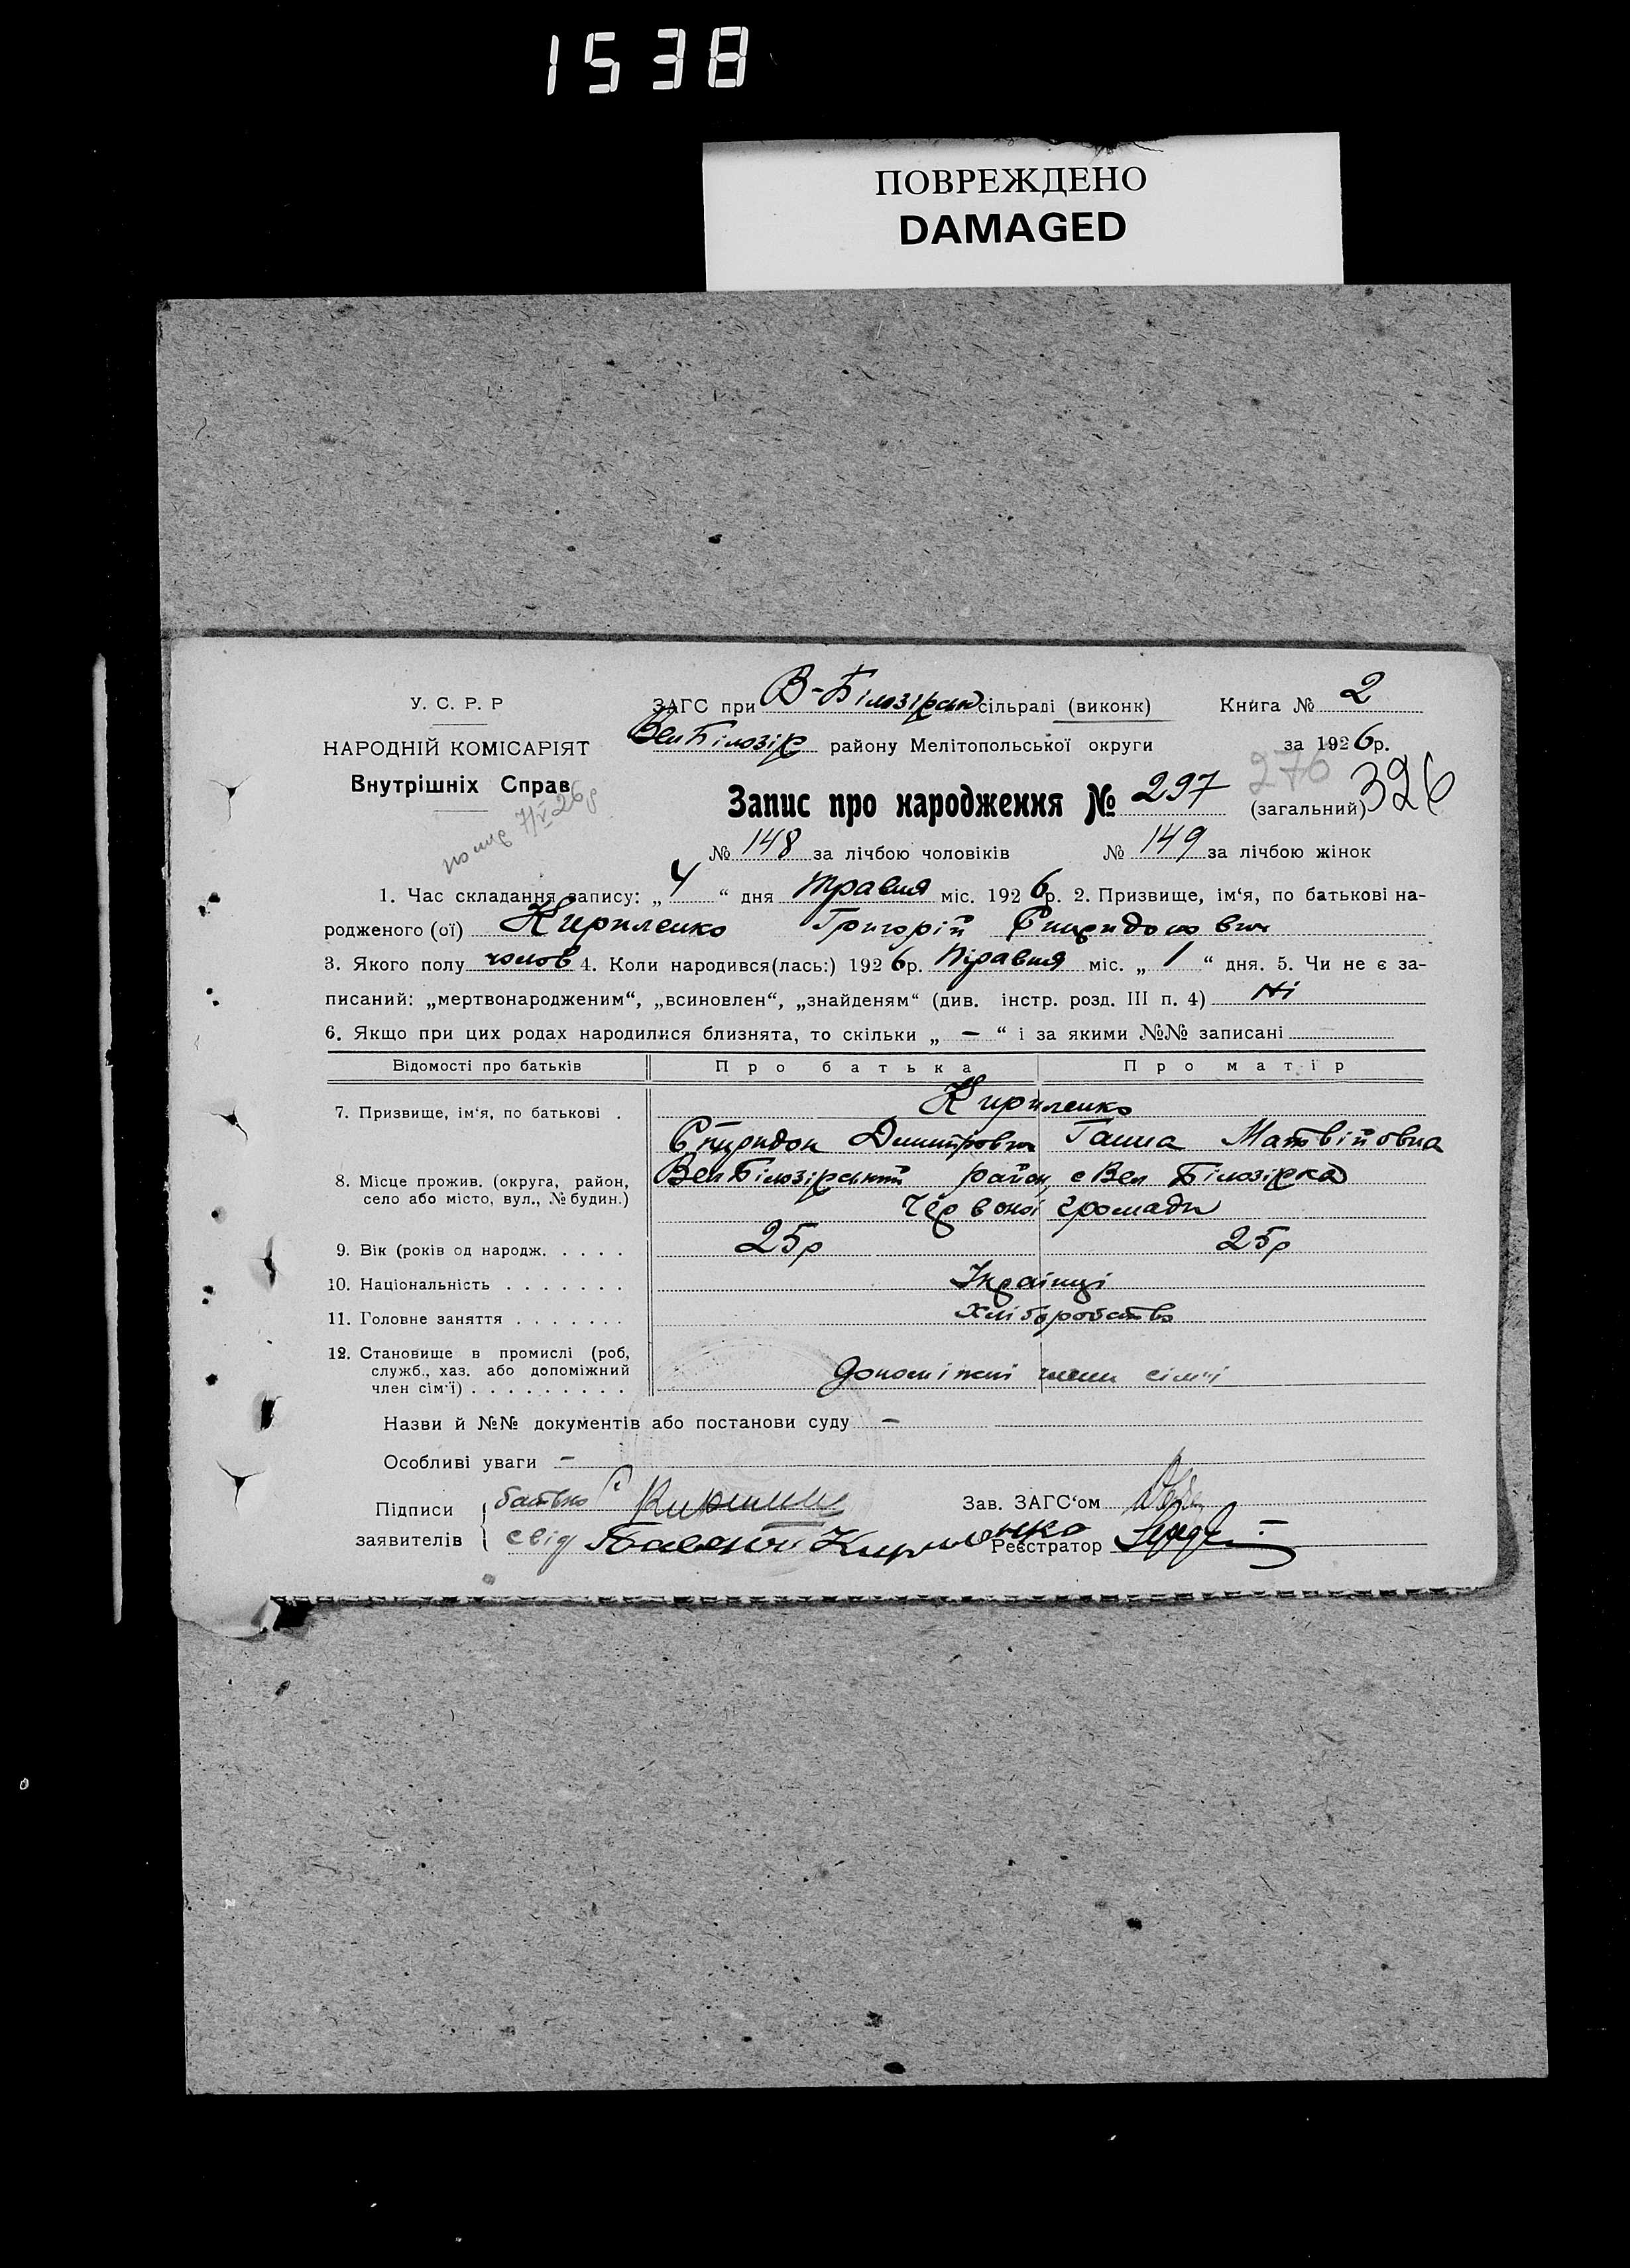 1538
ПОВРЕЖДЕНО
DAMAGED
У. С. Р. Р
ЗАГС при В-Білозірськ сільраді (виконк) Книга № 2
НАРОДНІЙ КОМІСАРІЯТ
ВелБілозір району Мелітопольської округи за 1926р.
Внутрішніх Справ
270 326
Запис про народження № 297 (загальний)
7/V 26р
№ 148 за лічбою чоловіків № 149 за лічбою жінок
1. Час складання запису: „ 4 “ дня травня міс. 1926р. 2. Призвище, ім‘я, по батькові на-
родженого (ої) Кириленко Григорій Спиридонович
3. Якого полу чолов 4. Коли народився(лась:) 1926р. Травня міс. „ 1 “ дня. 5. Чи не є за-
писаний: „мертвонародженим“, „всиновлен“, „знайденям“ (див. інстр. розд. III п. 4) Ні
6. Якщо при цих родах народилися близнята, то скільки „ — “ і за якими №№ записані
Відомості про батьків Про батька Про матір
7. Призвище, ім‘я, по батькові . Кириленко
Спиридон Димитрович Ганна Матвійовна
8. Місце прожив. (округа, район, ВелБілозірський район, с Вел Білозірка
село або місто, вул., № будин.)
Червоної громади
9. Вік (років од народж. . . . . 25р 25р
10. Національність . . . . . . . Українці
11. Головне заняття . . . . . . . хліборобство
12. Становище в промислі (роб,
служб., хаз. або допоміжний допоміжні члени сім'ї
член сім‘ї) . . . . . . . . .
Назви й №№ документів або постанови суду —
Особливі уваги —
Підписи батько С Зав. ЗАГС‘ом
заявителів свід Кириленко Реєстратор